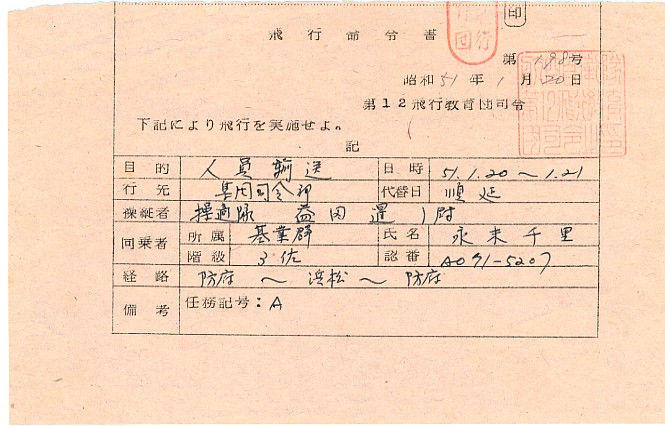 印
飛行命令書
第198号
昭和51年1月20日
第12飛行教育団司令
下記により飛行を実施せよ。
記
目的 人員輸送 日時 51.1.20〜1.21
行先 司令部 代替日 順延
操縦者 益田 1尉
同乗者 所属 基業群 氏名 永末千里
階級 3佐 認番 A071-5207
経路 防府〜浜松〜防府
備考 任務記号：A